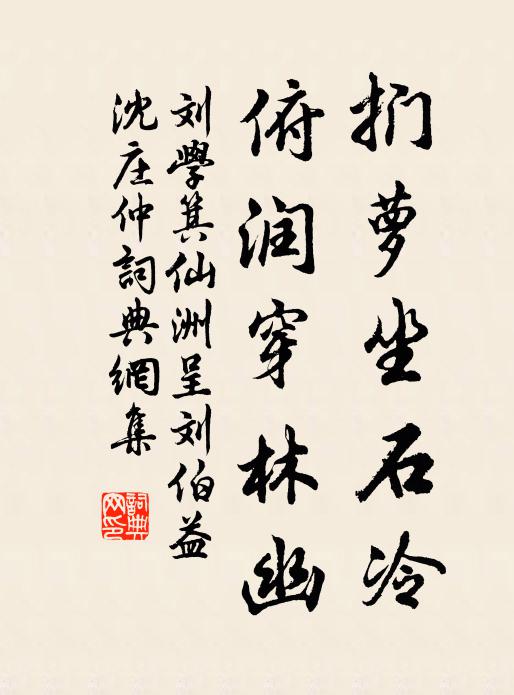 扪萝坐石冷
俯润穿林幽
刘學箕仙洲呈刘伯益
沈庄仲詞典網集
詞典
网印